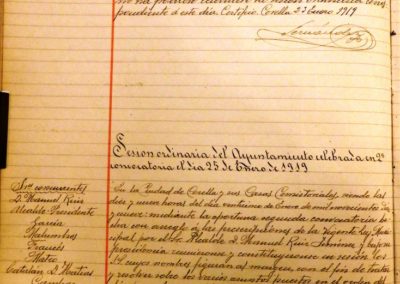 no ha podido celebrar la sesion ordinaria corres
pondiente á este dia. Certifico. Corella 23 Enero 1919
Sesion ordinaria del Ayuntamiento celebrada en 2ª
convocatoria el dia 25 de Enero de 1919
Sres concurrentes
D. Manuel Ruiz
Alcalde-Presidente
García
Francés
Mateo
Catalan D. Matias
En la Ciudad de Corella y sus Casas Consistoriales siendo las
diez y nueve horas del dia veinticinco de Enero de mil novecientos diez
y nueve: mediante la oportuna segunda convocatoria he
cha con arreglo a las prescripciones de la vigente ley Muni
cipal por el Sr. Alcalde D. Manuel Ruiz y bajo su
presidencia reunieronse y constituyeronse en sesion los
Sres. cuyos nombres figuran al margen con el fin de tratar
y resolver sobre los varios asuntos puestos en el orden del